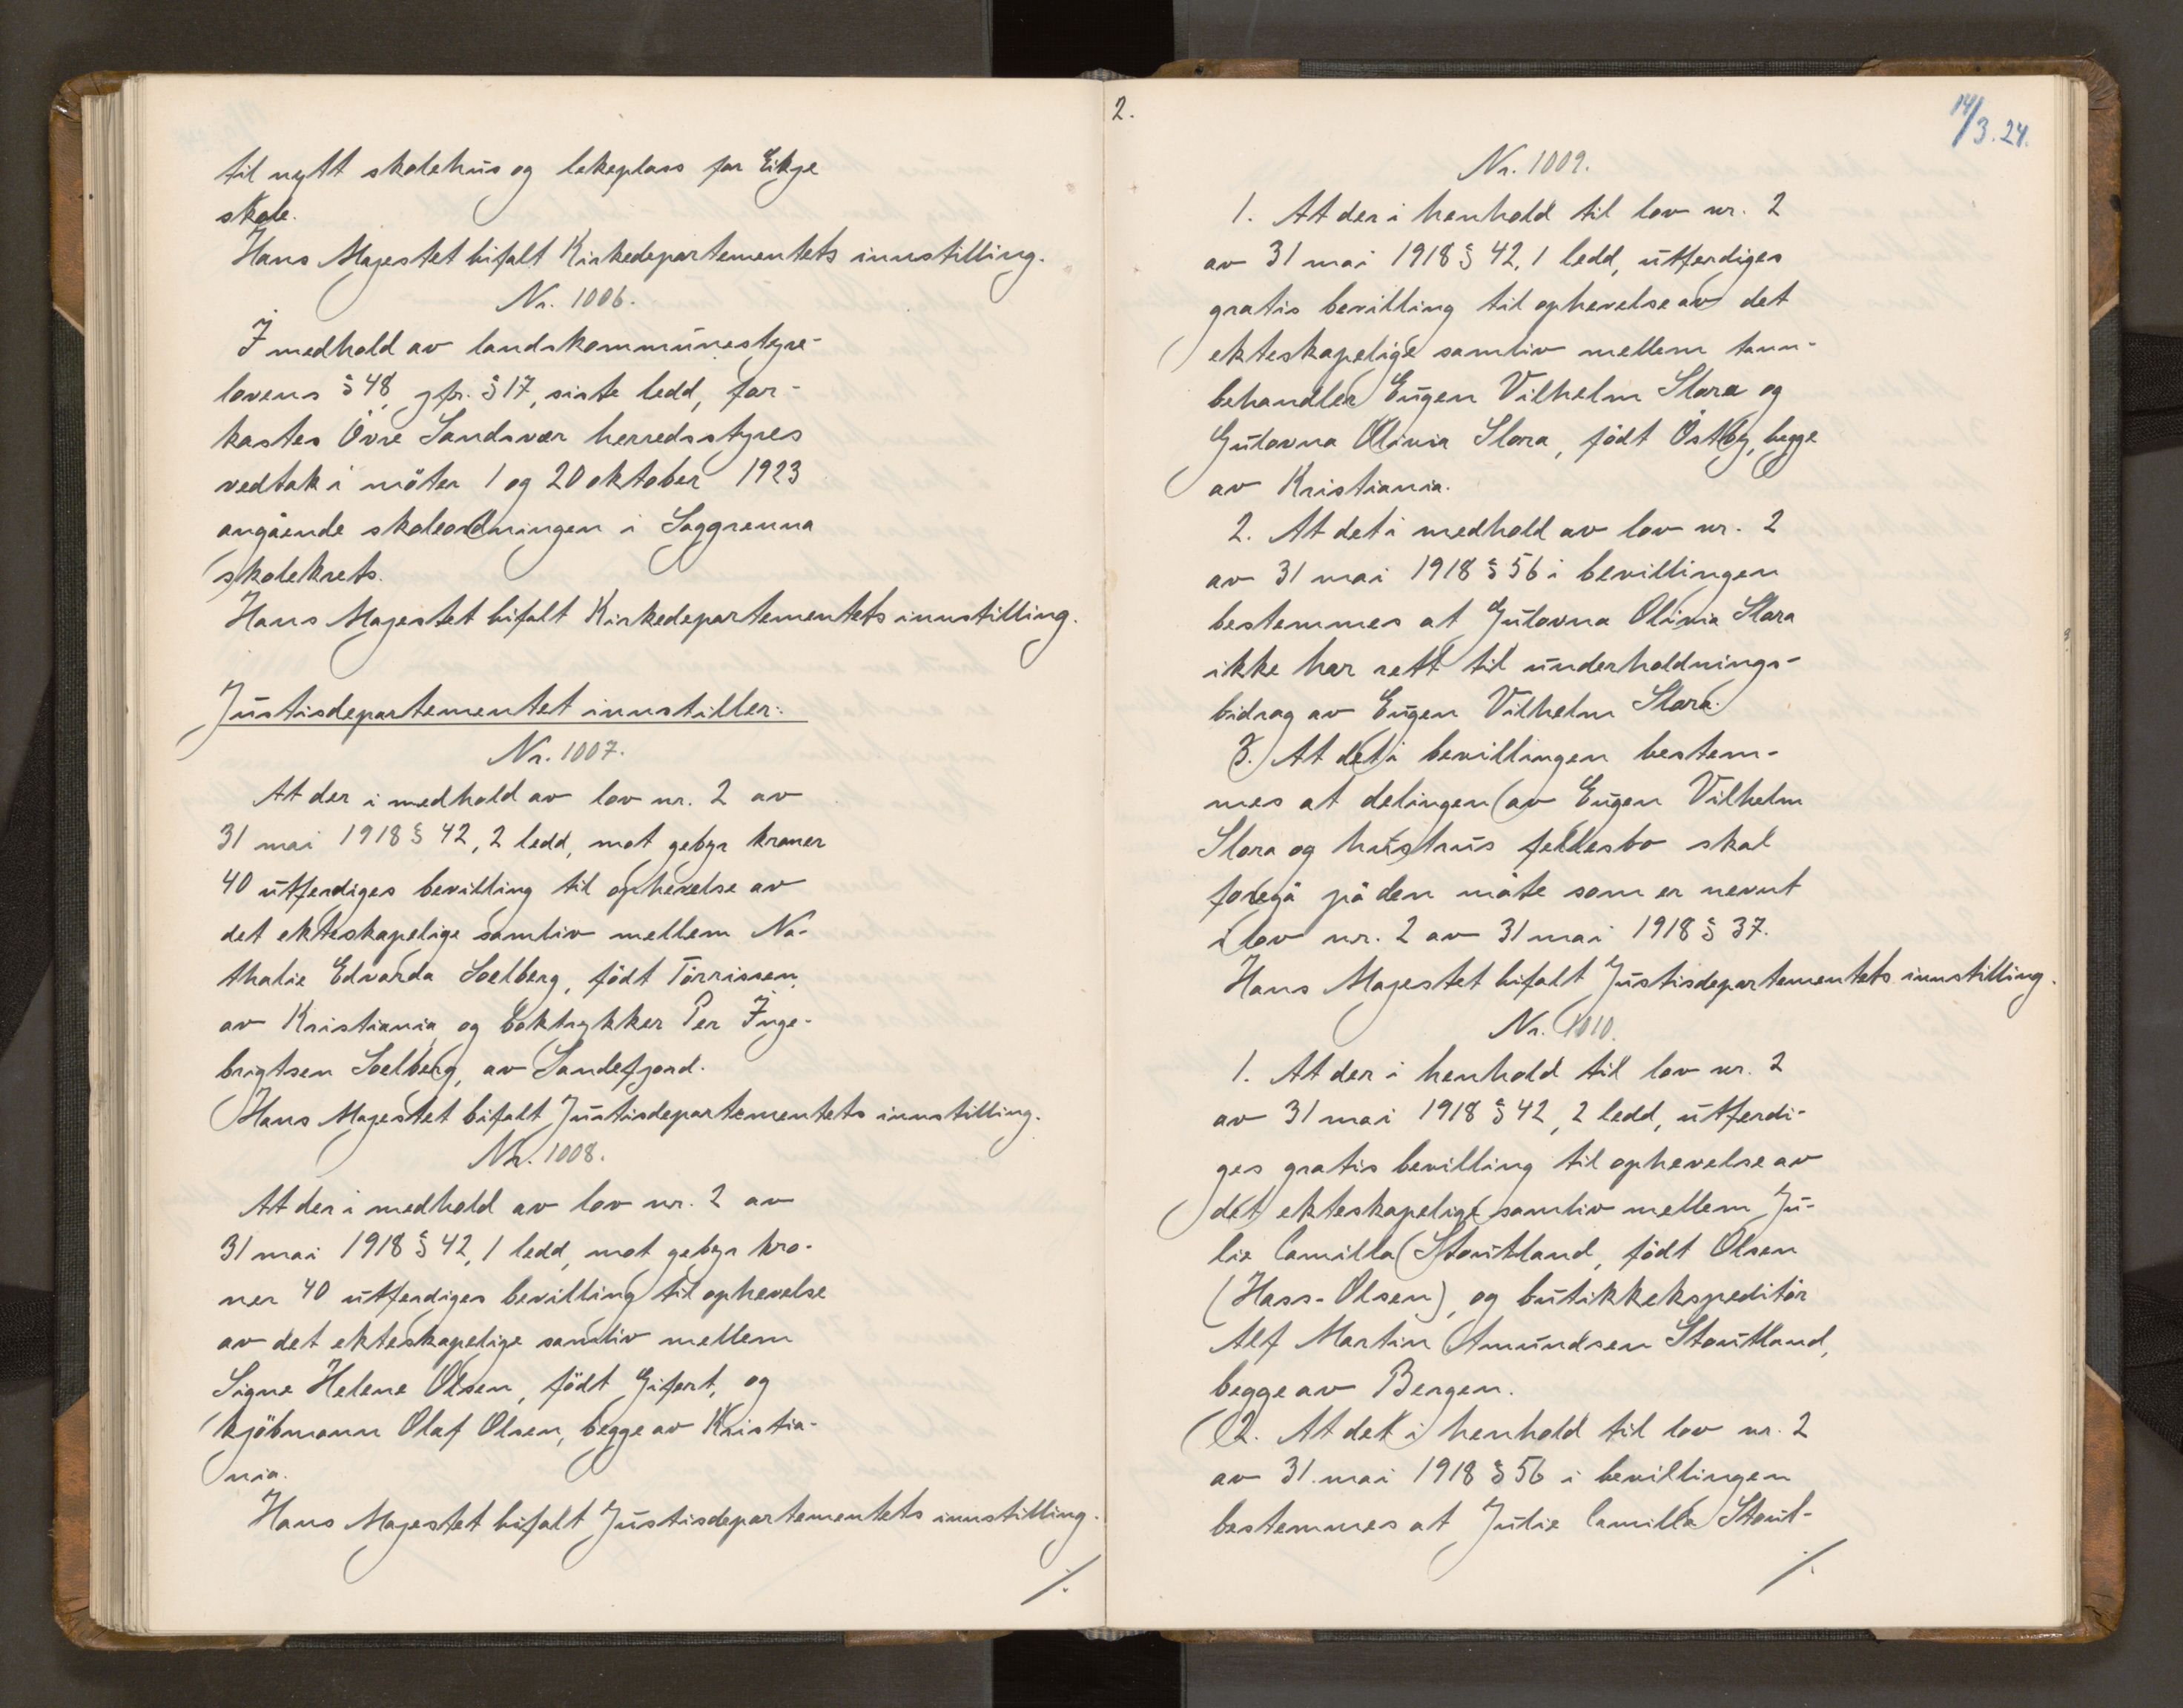 til nytt skolehus og lekeplass for Eikje
skole.
Hans Majestet bifalt Kirkedepartementets innstilling.
Nr. 1006.
I medhold av landskommunestyre-
lovens § 48, jfr. § 17, siste ledd, for-
kastes Övre Sandsvær herredsstyres
vedtak i möter 1 og 20 oktober 1923
angående skoleordningen i Saggrenna
skolekrets.
Hans Majestet bifalt Kirkedepartementets innstilling.
Justisdepartementet innstiller:
Nr. 1007.
At der i medhold av lov nr. 2 av
31 mai 1918 § 42, 2 ledd, mot gebyr kroner
40 utferdiges bevilling til ophevelse av
det ekteskapelige samliv mellem Na-
thalie Edvarda Soelberg, födt Törrissen,
av Kristiania, og boktrykker Per Inge-
brigtsen Soelberg, av Sandefjord.
Hans Majestet bifalt Justisdepartementets innstilling.
Nr. 1008.
At der i medhold av lov nr. 2 av
31 mai 1918 § 42, 1 ledd, mot gebyr kro-
ner 40 utferdiges bevilling til ophevelse
av det ekteskapelige samliv mellem
Signe Helene Olsen, födt Gifert, og
kjöbmann Olaf Olsen, begge av Kristia-
nia.
Hans Majestet bifalt Justisdepartementets innstilling.
./.
2.
14/3.24.
Nr. 1009.
1. At der i henhold til lov nr. 2
av 31 mai 1918 § 42, 1 ledd, utferdiges
gratis bevilling til ophevelse av det
ekteskapelige samliv mellem tann-
behandler Eugen Vilhelm Slora og
Gulovna Olivia Slora, födt Östby, begge
av Kristiania.
2. At det i medhold av lov nr. 2
av 31 mai 1918 § 56 i bevillingen
bestemmes at Gulovna Olivia Slora
ikke har rett til underholdnings-
bidrag av Eugen Vilhelm Slora.
3. At det i bevillingen bestem-
mes at delingen av Eugen Vilhelm
Slora og hustrus fellesbo skal
foregå på den måte som er nevnt
i lov nr. 2 av 31 mai 1918 § 37.
Hans Majestet bifalt Justisdepartementets innstilling.
Nr. 1010.
1. At der i henhold til lov nr. 2
av 31 mai 1918 § 42, 2 ledd, utferdi-
ges gratis bevilling til ophevelse av
det ekteskapelige samliv mellem Ju-
lie Camilla Stoutland, födt Olsen
(Hass-Olsen), og butikkekspeditör
Alf Martin Amundsen Stoutland,
begge av Bergen.
2. At det i henhold til lov nr. 2
av 31. mai 1918 § 56 i bevillingen
bestemmes at Julie Camilla Stout-
./.